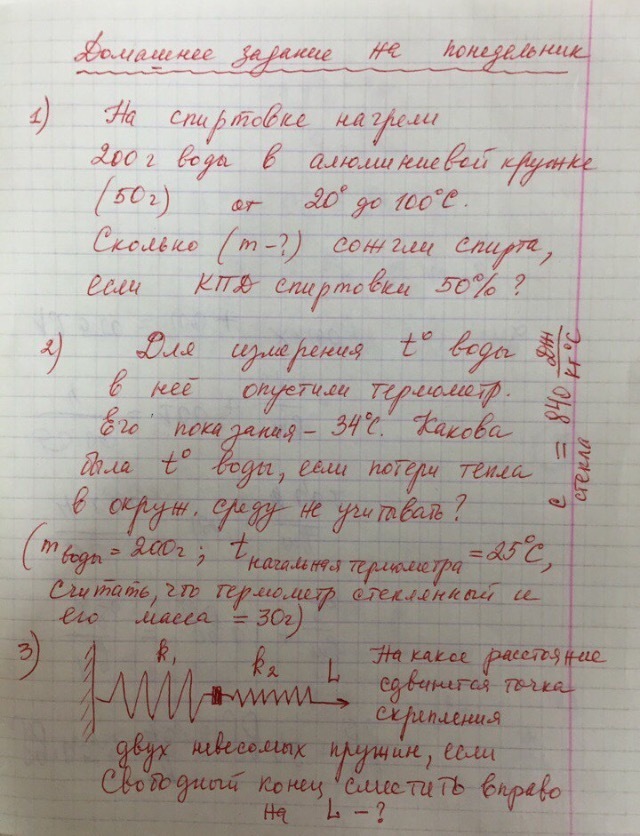 Домашнее задание на понедельник
1) На спиртовке нагрели
200г воды в алюминиевой кружке
(50г) от 20° до 100°С.
Сколько (m-?) сожгли спирта,
если КПД спиртовки 50%?
2) Для измерения t° воды
в неё опустили термометр.
Его показания – 34°С. Какова
была t° воды, если потери тепла
в окруж. среду не учитывать?
(m воды = 200г; t начальная термометра = 25°С,
считать, что термометр стеклянный и
его масса = 30г)
c стекла = 840 Дж/кг°С
3) k₁ k₂ L
На какое расстояние
сдвинется точка
скрепления
двух невесомых пружин, если
Свободный конец сместить вправо
на L – ?